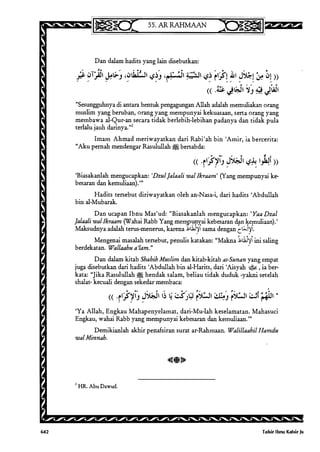 55. AR RAHMAAN
Dan dalam hadits yang lain disebutkan:
"Sesungguhnya di antara bentuk pengagungan Allah adalah memuliakan orang
muslim yang beruban, orang yang mempunyai kekuasaan, serta orang yang
membawa al-Qur-an secara tidak berlebih-lebihan padanya dan tidak pula
terlalu jauh darinya."²
Imam Ahmad meriwayatkan dari Rabi'ah bin 'Amir, ia bercerita:
"Aku pernah mendengar Rasulullah ﷺ bersabda:
(( أَلِظُّوا بِذِي الْجَلَالِ وَالْإِكْرَامِ. ))
'Biasakanlah mengucapkan: 'Dzul Jalaali wal Ikraam' (Yang mempunyai ke-
besaran dan kemuliaan).'"
Hadits tersebut diriwayatkan oleh an-Nasa-i, dari hadits 'Abdullah
bin al-Mubarak.
Dan ucapan Ibnu Mas'ud: "Biasakanlah mengucapkan: 'Yaa Dzal
Jalaali wal Ikraam (Wahai Rabb Yang mempunyai kebesaran dan kemuliaan).'
Maksudnya adalah terus-menerus, karena sama dengan
Mengenai masalah tersebut, penulis katakan: "Makna ini saling
berdekatan. Wallaahu a'lam."
Dan dalam kitab Shahih Muslim dan kitab-kitab as-Sunan yang empat
juga disebutkan dari hadits 'Abdullah bin al-Harits, dari 'Aisyah, ia ber-
kata: "Jika Rasulullah ﷺ hendak salam, beliau tidak duduk -yakni setelah
shalat- kecuali dengan sekedar membaca:
(( اَللَّهُمَّ أَنْتَ السَّلَامُ وَمِنْكَ السَّلَامُ تَبَارَكْتَ يَا ذَا الْجَلَالِ وَالْإِكْرَامِ. ))"
'Ya Allah, Engkau Mahapenyelamat, dari-Mu-lah keselamatan. Mahasuci
Engkau, wahai Rabb yang mempunyai kebesaran dan kemuliaan.'"
Demikianlah akhir penafsiran surat ar-Rahmaan. Walillaahil Hamdu
wal Minnah.
² HR. Abu Dawud.
642
Tafsir Ibnu Katsir Ju